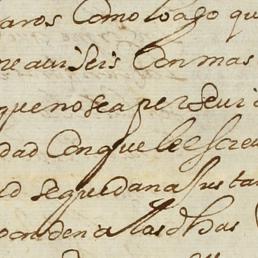 aros como lo ago qu
me aviseis con mas
que no sea perseui
dad Con que le escreu
se quedan a sus tar
a las dhas